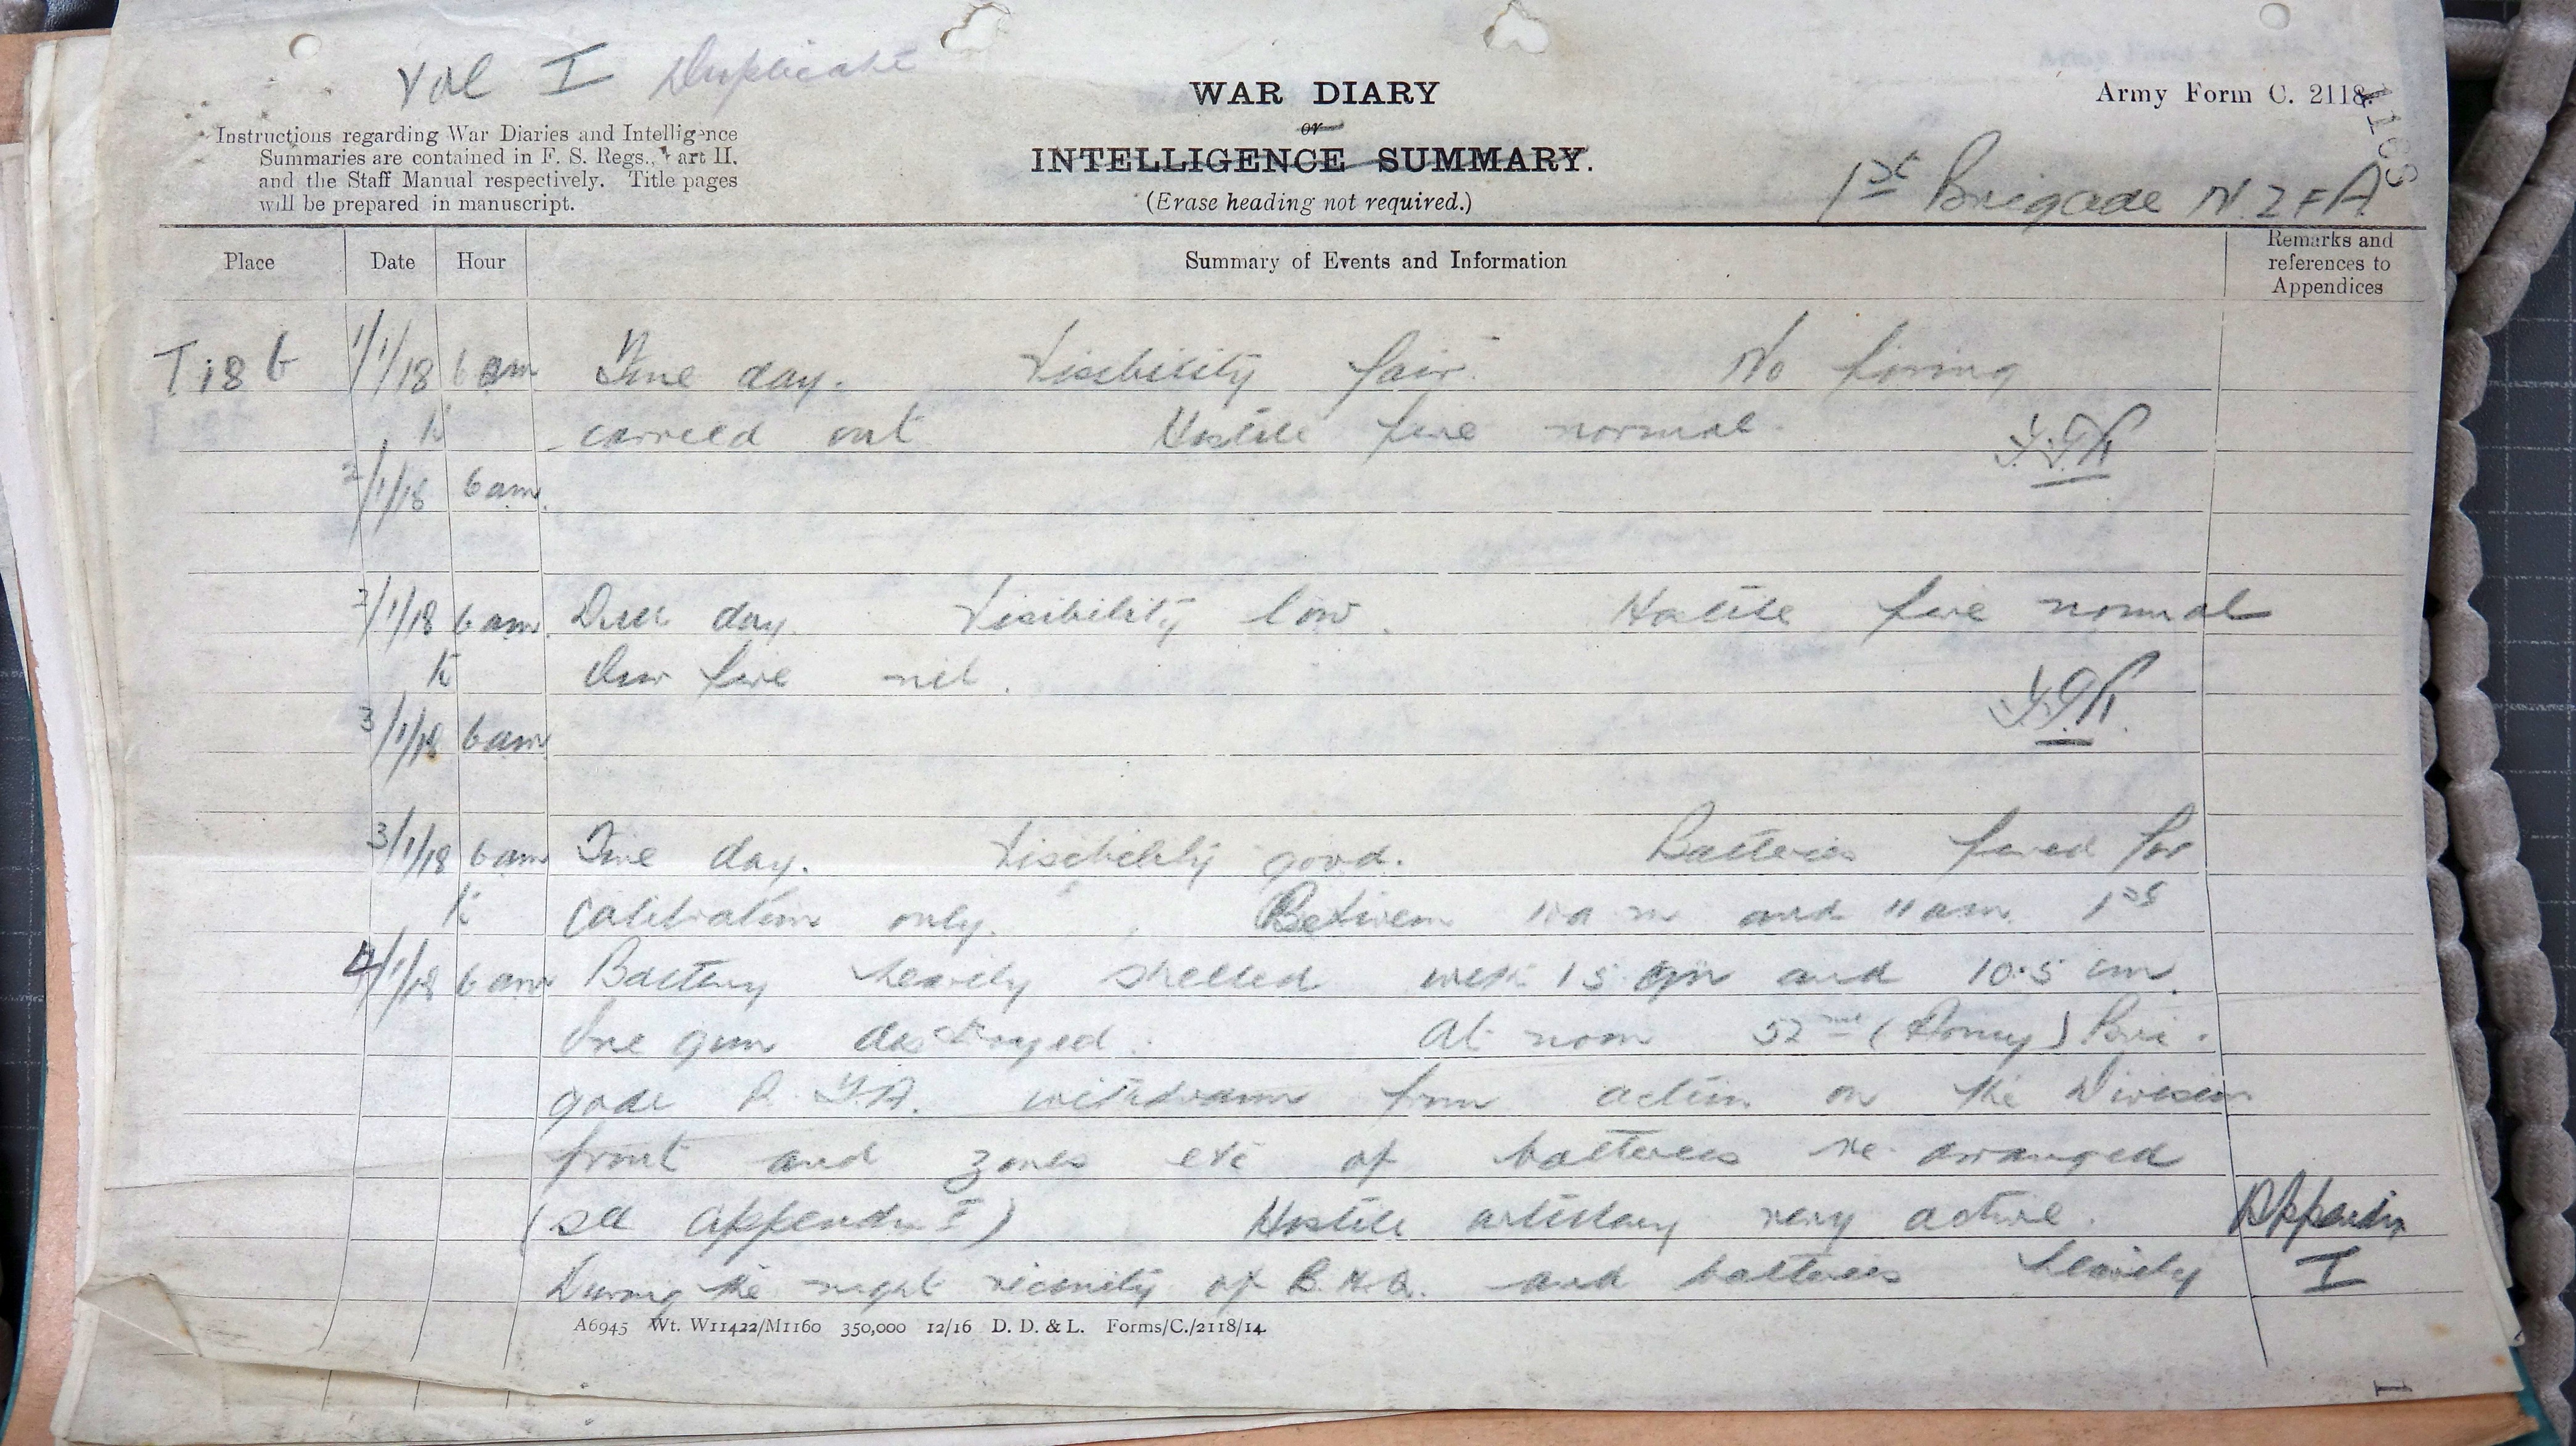 Vol I Duplicate
WAR DIARY
or
INTELLIGENCE SUMMARY.
(Erase heading not required.)
Army Form C. 2118.
Instructions regarding War Diaries and Intelligence
Summaries are contained in F. S. Regs., Part II.
and the Staff Manual respectively. Title pages
will be prepared in manuscript.
1st Brigade N.Z.F.A
Place Date Hour Summary of Events and Information Remarks and references to Appendices
1/1/18 6 am Fine day. Visibility fair. No firing
to carried out Hostile fire normal.
2/1/18 6 am.
2/1/18 6 am. Dull day. Visibility low. Hostile fire normal
to Our fire nil.
3/1/18 6 am
3/1/18 6 am Fine day. Visibility good. Batteries fired for
to calibration only. Between 10 a m and 11 am 1st
4/1/18 6 am Battery heavily shelled with 15 cm and 10.5 cm.
One gun destroyed. At noon 52nd (Army) Bri-
gade R.F.A. withdrawn from action on the Division
front and zones etc of batteries re-arranged
(see appendix I) Hostile artillery very active. Appendix
During the night vicinity of B.H.Q. and batteries heavily I
A6945 Wt. W11422/M1160 350,000 12/16 D. D. & L. Forms/C./2118/14.
1